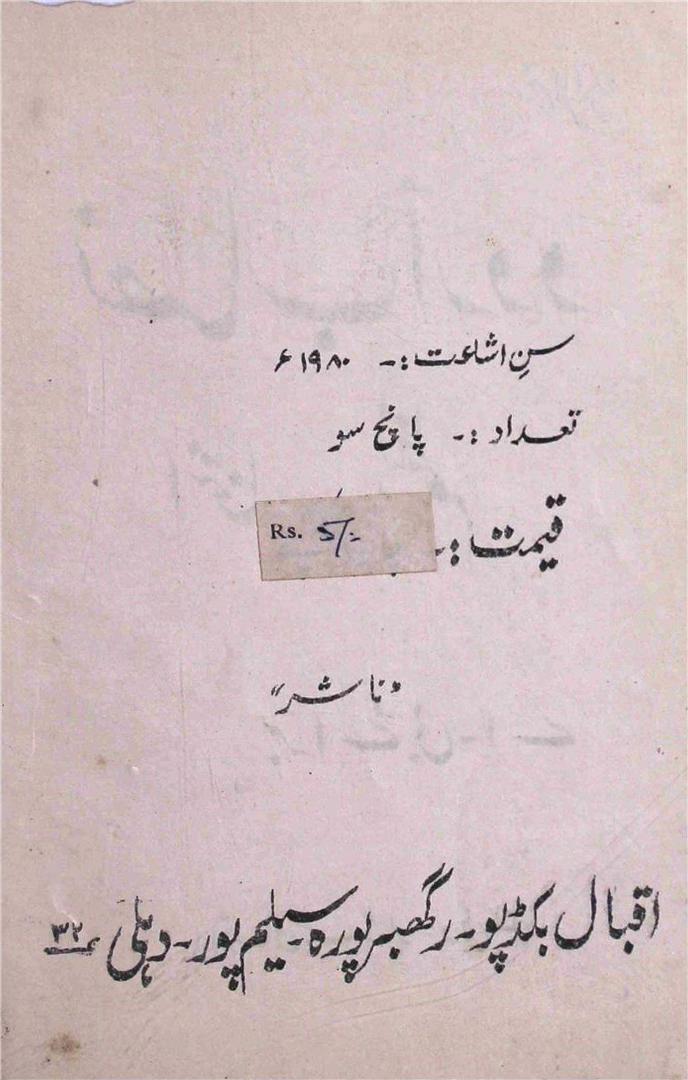 سنِ اشاعت :۔ ۱۹۸۰ء
تعداد :۔ پانچ سو
قیمت :۔ Rs. 5/=
"ناشر"
اقبال بکڈپو۔ رگھبر پورہ۔ سیلم پور۔ دہلی ۳۲